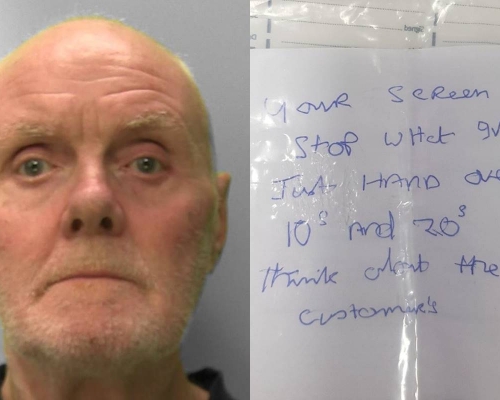 your screen
Stop what
Just HAND ove
10s and 20s
think about the
customer's